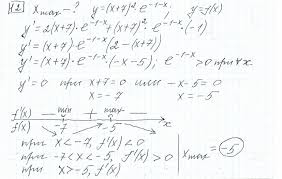 12 x max - ? y = (x+7)² · e^(-1-x) ; y = f(x)
y' = 2(x+7) · e^(-1-x) + (x+7)² · e^(-1-x) · (-1)
y' = (x+7) · e^(-1-x) (2 - (x+7))
y' = (x+7) · e^(-1-x) · (-x-5) ; e^(-1-x) > 0 при ∀x
y' = 0 при x+7=0 или -x-5=0
x = -7 x = -5
f'(x) - min + max -
f(x) -7 -5 x
при x < -7, f'(x) < 0
при -7 < x < -5, f'(x) > 0
при x > -5, f'(x)
x max = -5